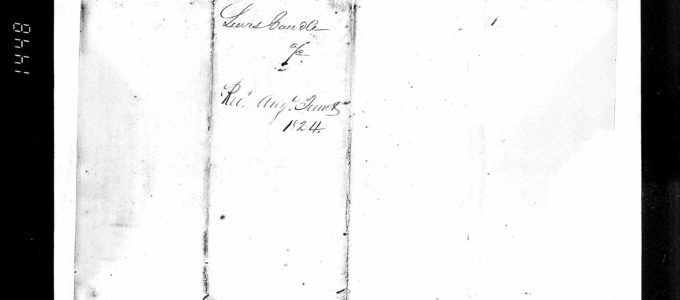 1448
Lewis Caudle
a/c
Recd. Augt. Term
1824.